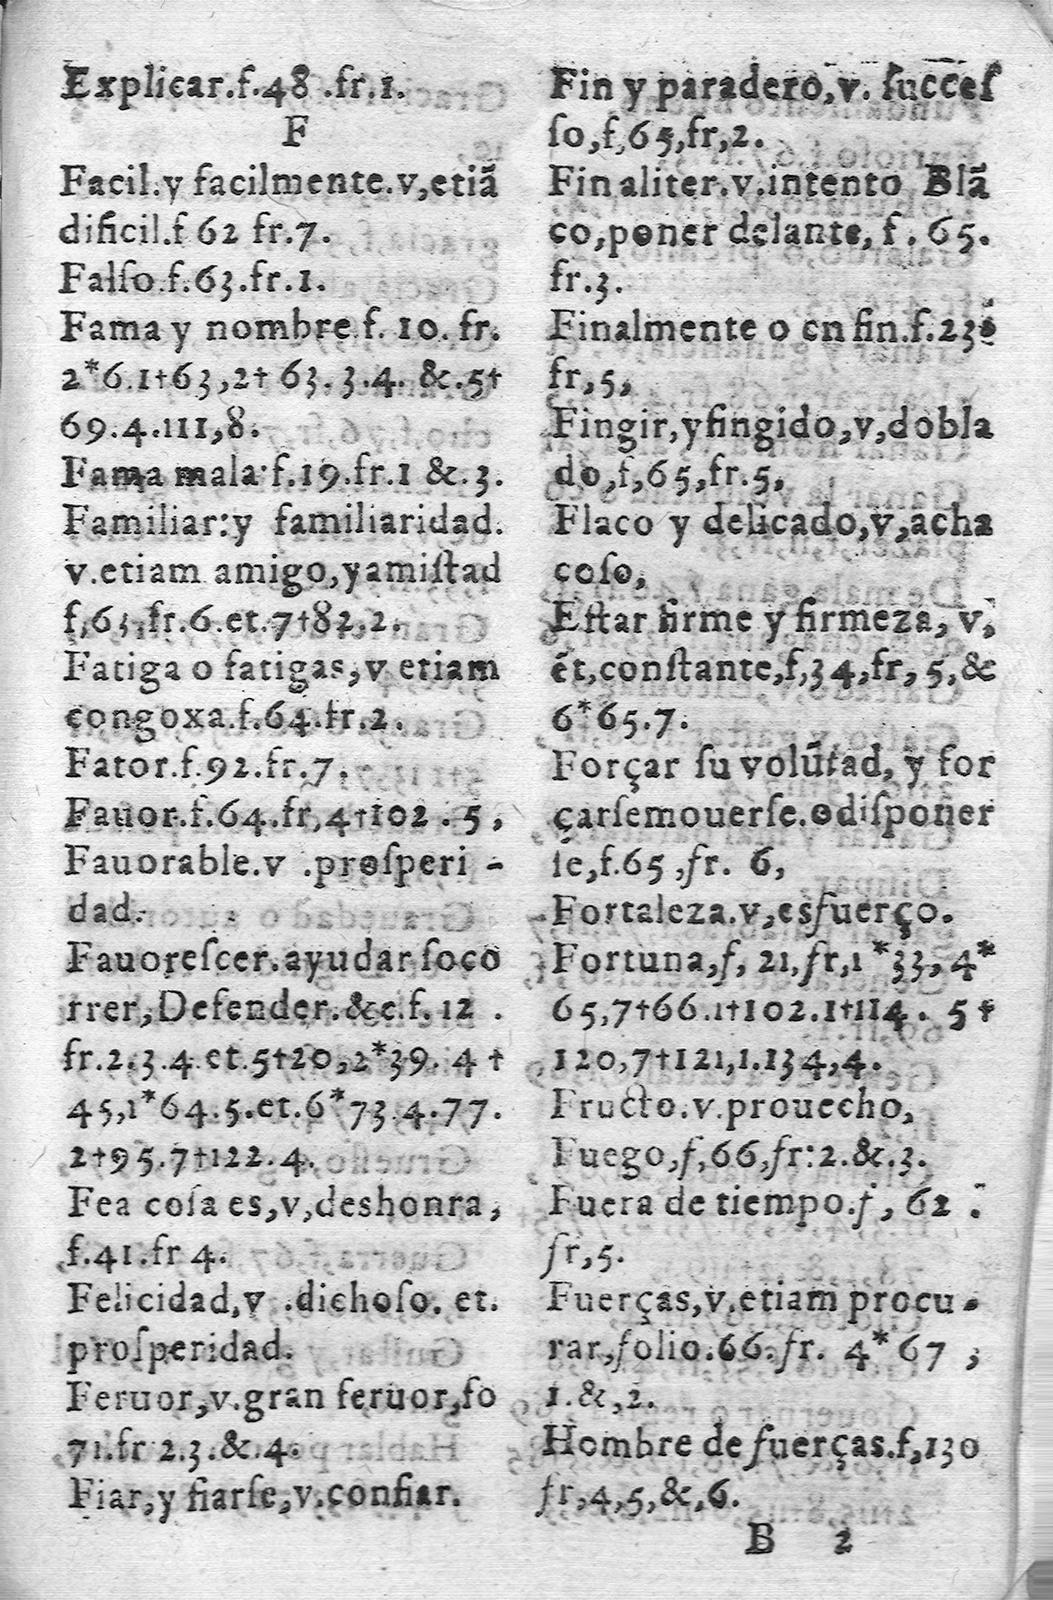 Explicar.f.48.fr.1.
F
Facil.y facilmente.v,etiã
dificil.f 62 fr.7.
Falſo.f.63.fr.1.
Fama y nombre f. 10. fr.
2*6.1†63,2† 63.3.4. &.5†
69.4.111,8.
Fama mala f.19.fr.1 &.3.
Familiar:y familiaridad.
v.etiam amigo,y amiſtad
f,63,fr.6.et.7†82.2.
Fatiga o fatigas,v etiam
congoxa.f.64.fr.2.
Fator.f.92.fr.7.
Fauor.f.64.fr,4†102.5,
Fauorable.v .proſperi-
dad.
Fauoreſcer.ayudar ſoco
rrer,Defender.&c.f.12.
fr.2.3.4.et.5†20,2*39.4†
45,1*64.5.et.6*73.4.77.
2†95.7†122.4.
Fea coſa es,v,deshonra,
f.41.fr 4.
Felicidad,v .dichoſo. et.
proſperidad.
Feruor,v.gran feruor,fo
71.fr 2.3.&.4.
Fiar,y fiarſe,v.confiar.
Fin y paradero,v. ſucceſ
ſo,f,65,fr,2.
Finaliter.v.intento Blã
co,poner delante, f. 65.
fr.3.
Finalmente o en fin.f.23.
fr,5,
Fingir,y fingido,v,dobla
do,f,65,fr.5,
Flaco y delicado,v,acha
coſo,
Eſtar firme y firmeza, v,
ét,conſtante,f,34,fr, 5,&
6*65.7.
Forçar ſu volũtad, y for
çarſemouerſe.odiſponer
ſe,f.65,fr. 6,
Fortaleza.v,esfuerço.
Fortuna,f, 21,fr,1*33,4*
65,7†66.1†102.1†114. 5†
120,7†121,1.134,4.
Fructo.v.prouecho,
Fuego,f,66,fr:2.&.3.
Fuera de tiempo.f, 62.
fr,5.
Fuerças,v.etiam procu-
rar,folio.66.fr. 4*67,
1.&,2.
Hombre de fuerças.f,130
fr,4,5,&,6.
B 2